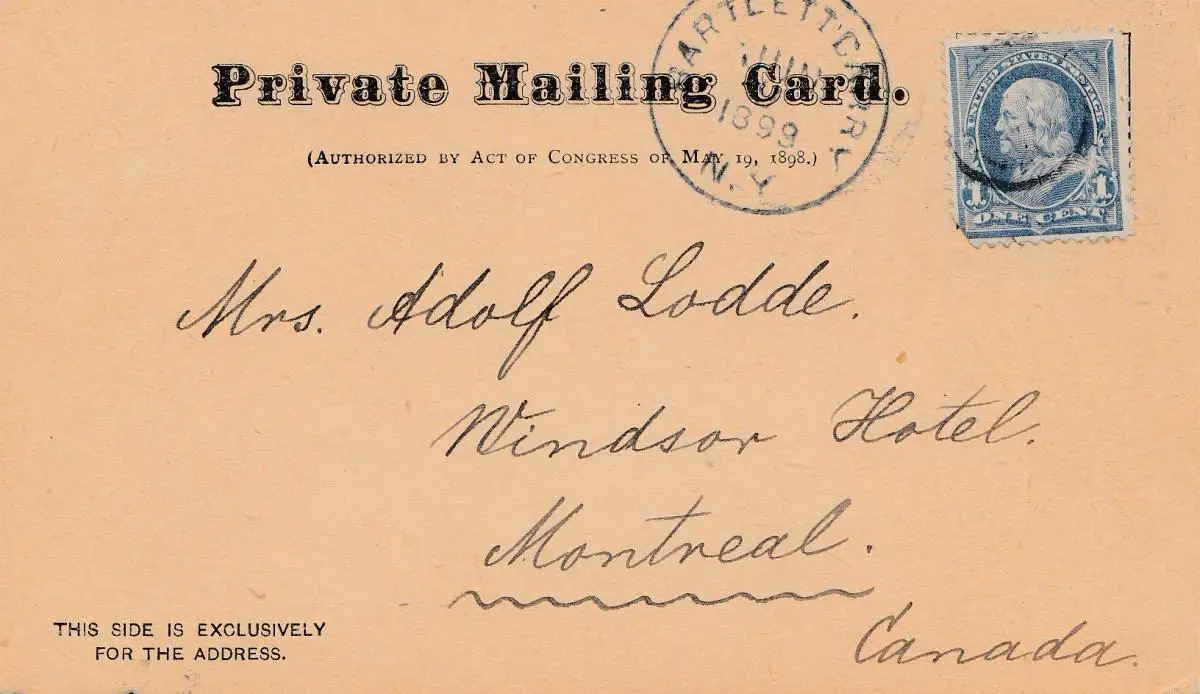 Private Mailing Card.
(AUTHORIZED BY ACT OF CONGRESS OF MAY 19, 1898.)
BARTLETT CARRY
JUN
1899
N.Y.
UNITED STATES POSTAGE
1 1
ONE CENT
Mrs. Adolf Lodde.
Windsor Hotel.
Montreal.
Canada.
THIS SIDE IS EXCLUSIVELY
FOR THE ADDRESS.